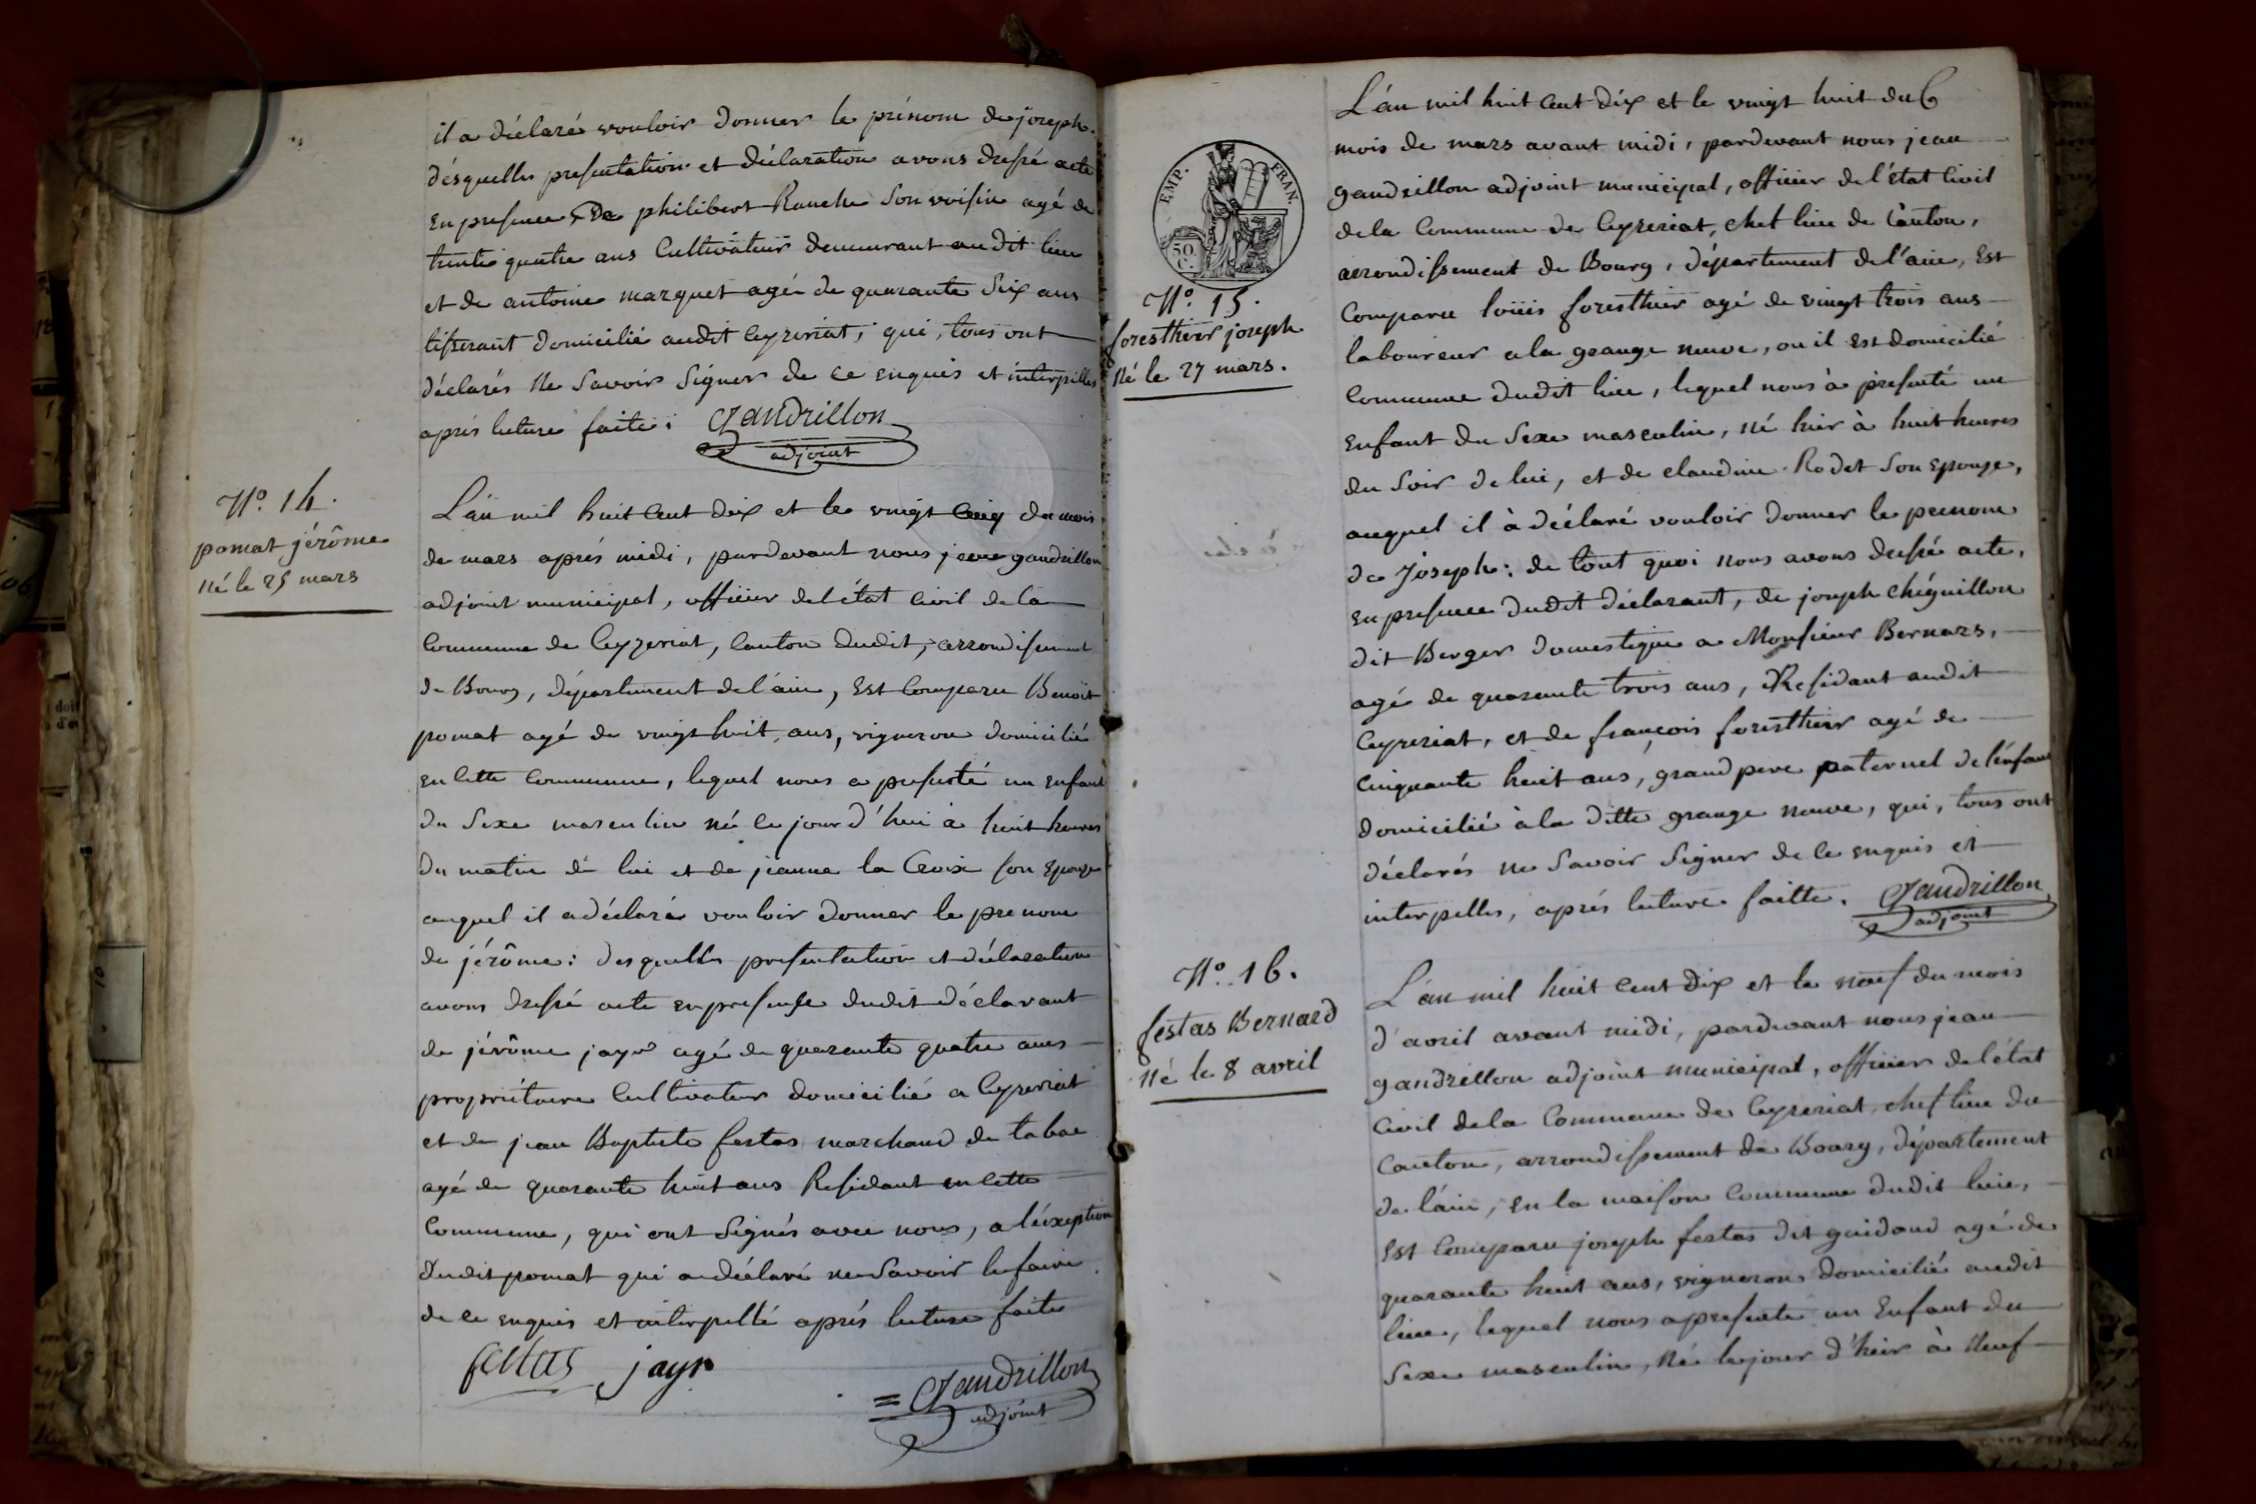 il a déclaré vouloir donner le prénom de joseph.
désquelles presentation et déclaration avons dressé acte
en presence de philibert Rauche son voisin agé de
trente quatre ans Cultivateur demeurant au dit lieu
et de antoine marquet agé de quarante Six ans
tisserant domicilié audit Ceyzeriat, qui, tous ont
déclarés ne Savoir Signer de ce enquis et interpellés
aprés lecture faite. Gandrillon
adjoint
N.° 14.
pomat jérôme
né le 25 mars
L'an mil huit Cent dix et le vingt Cinq du mois
de mars aprés midi, pardevant nous jean gandrillon
adjoint municipal, officier del'état Civil de la
Commune de Ceyzeriat, Canton dudit, arrondissement
de Bourg, département del'ain, Est Comparu Benoit
pomat agé de vingt huit, ans, vigneron domicilié
en Cette Commune, lequel nous a presenté un Enfant
du Sexe masculin né Ce jour d'hui à huit heures
du matin de lui et de jeanne la Croix son Epouse
auquel il a déclaré vouloir donner le prenom
de jérôme: desquelles presentation et déclaration
avons dressé acte en presense dudit déclarant
de jérôme jayr agé de quarante quatre ans
propriétaire Cultivateur domicilié a Ceyzeriat
et de jean Baptiste festas marchand de tabac
agé de quarante huit ans Residant en Cette
Commune, qui ont Signés avec nous, a l'éxception
dudit pomat qui a déclaré ne Savoir le faire
de ce enquis et interpellé aprés lecture faite
festas jayr
= Gandrillon
adjoint
EMP. FRAN.
50 C.
N.° 15.
foresthier joseph
Né le 27 mars.
L'an mil huit Cent dix et le vingt huit du
mois de mars avant midi, pardevant nous jean
gandrillon adjoint municipal, officier del'état Civil
de la Commune de Ceyzeriat, chef lieu de Canton,
arrondissement de Bourg, département de l'ain, Est
Comparu loüis foresthier agé de vingt trois ans
laboureur a la grange neuve, ou il Est domicilié
Commune dudit lieu, lequel nous à présenté un
Enfant du Sexe masculin, né hier à huit heures
du Soir de lui, et de claudine Rodet Son Epouse,
auquel il à déclaré vouloir donner le prenom
de Joseph: de tout quoi nous avons dressé acte,
en presence dudit déclarant, de joseph chéguillon
dit Berger domestique a Monsieur Bernars,
agé de quarante trois ans, Residant audit
Ceyzeriat, et de françois foresthier agé de
Cinquante huit ans, grand pere paternel de l'énfant
domicilié à la ditte grange neuve, qui, tous ont
déclarés ne Savoir Signer de ce enquis et
interpelles, aprés lecture faitte. Gandrillon
adjoint
N.° 16.
festas Bernard
Né le 8 avril
L'an mil huit Cent Dix et le neuf du mois
d'avril avant midi, pardevant nous jean
gandrillon adjoint municipal, officier de l'état
Civil de la Commune de Ceyzeriat, chef lieu du
Canton, arrondissement de Bourg, département
de l'ain, en la maison Commune dudit lieu,
Est Comparu joseph festas dit guidand agé de
quarante huit ans, vigneron domicilié audit
lieu, lequel nous a presenté un Enfant du
Sexe masculin, Né le jour d'hier à Neuf